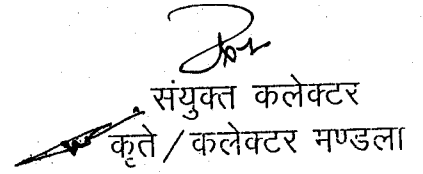 संयुक्त कलेक्टर
कृते / कलेक्टर मण्डला